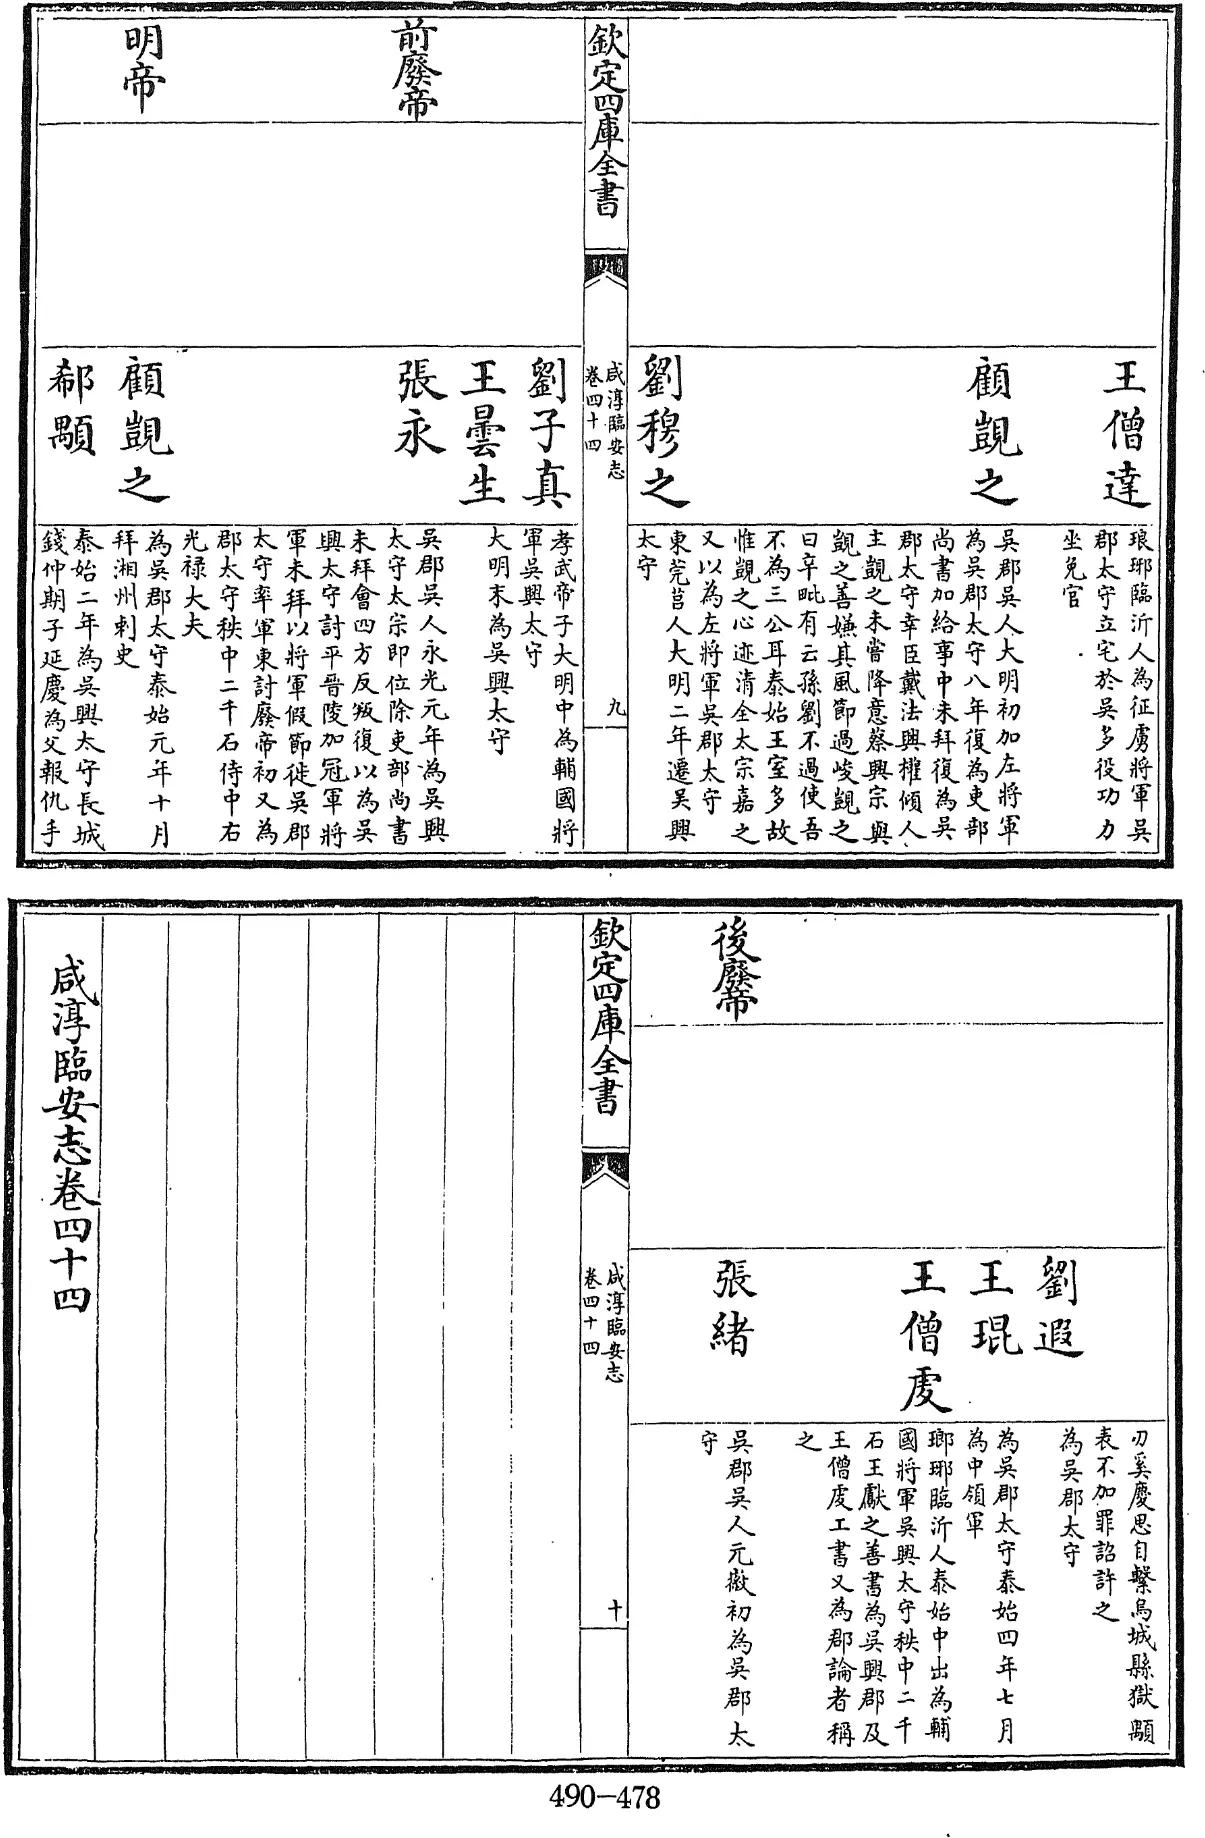 王僧達
琅琊臨沂人為征虜將軍吳
郡太守立宅於吳多役功力
坐免官
顧覬之
吳郡吳人大明初加左將軍
為吳郡太守八年復為吏部
尚書加給事中未拜復為吳
郡太守幸臣戴法興權傾人
主覬之未嘗降意蔡興宗與
覬之善嫌其風節過峻覬之
曰辛毗有云孫劉不過使吾
不為三公耳泰始王室多故
惟覬之心迹清全太宗嘉之
又以為左將軍吳郡太守
劉穆之
東莞莒人大明二年遷吴興
太守
欽定四庫全書
咸淳臨安志
卷四十四
九
前廢帝
劉子真
孝武帝子大明中為輔國將
軍吳興太守
王曇生
大明末為吳興太守
張永
吳郡吳人永光元年為吳興
太守太宗即位除吏部尚書
未拜會四方反叛復以為吳
興太守討平晉陵加冠軍將
軍未拜以將軍假節徙吳郡
太守率軍東討廢帝初又為
郡太守秩中二千石侍中右
光祿大夫
明帝
顧覬之
為吳郡太守泰始元年十月
拜湘州刺史
郗顒
泰始二年為吳興太守長城
錢仲期子延慶為父報仇手
後廢帝
刃奚慶思自繫烏城縣獄顒
表不加罪詔許之
劉遐
為吳郡太守
王琨
為吳郡太守泰始四年七月
為中領軍
王僧虔
瑯琊臨沂人泰始中出為輔
國將軍吳興太守秩中二千
石王獻之善書為吳興郡及
王僧虔工書又為郡論者稱
之
張緒
吳郡吳人元徽初為吳郡太
守
欽定四庫全書
咸淳臨安志
卷四十四
十
咸淳臨安志卷四十四
490-478